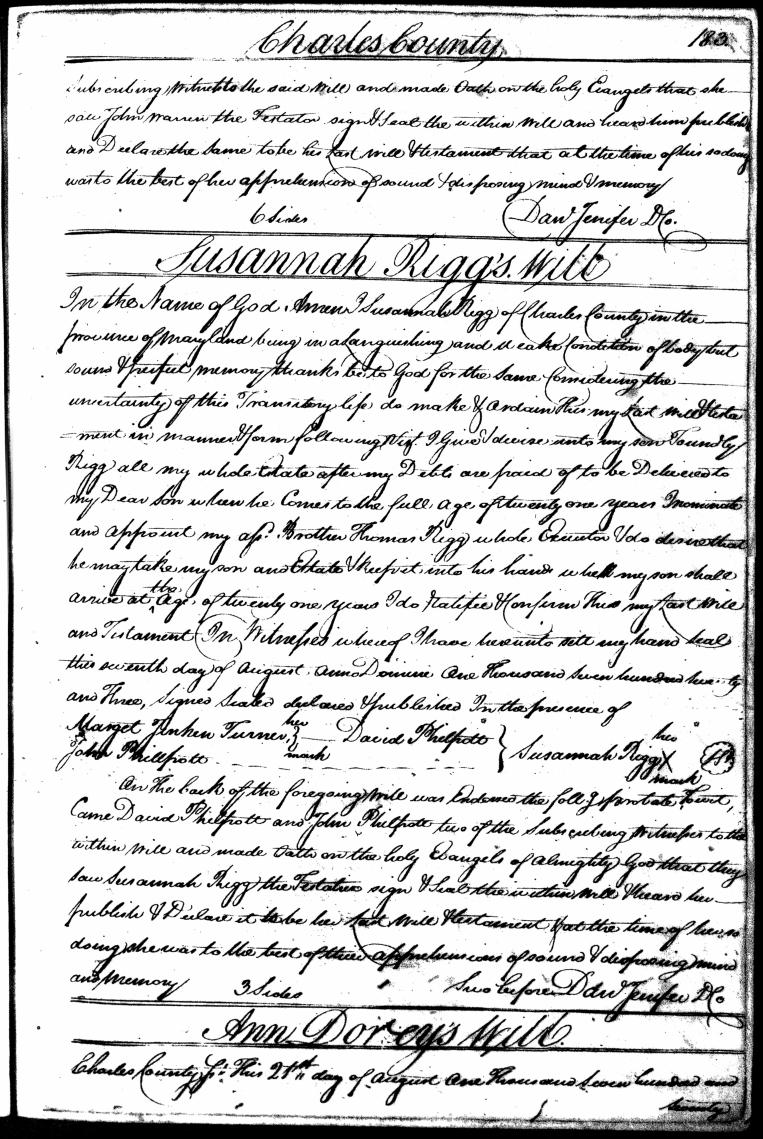 Charles County 183.
Subscribing Witness to the said Will and made Oath on the holy Evangels that she
saw John Warren the Testator sign & Seal the within Will and heard him publish
and Declare the same to be his Last will & testament that at the time of his so doing
was to the best of her apprehension of sound & disposing mind & memory
6 Sides Danl Jenifer D Co.
Susannah Rigg's Will
In the Name of God Amen I Susannah Rigg of Charles County in the
province of Maryland being in a Languishing and Weake Condition of body but
sound & perfect memory thanks be to God for the same Considering the
uncertainty of this Transitory life do make & ordain this my Last Will & testa
-ment in manner & form following Vizt. I Give & devise unto my son Townly
Rigg all my whole Estate after my Debts are paid of to be Delivered to
my Dear son when he Comes to the full age of twenty one years I nominate
and appoint my Brother Thomas Rigg whole Executor & do desire that
he may take my son and Estate & keep it into his hands whell my son shall
arrive at the Age of twenty one years I do Ratifie & Confirm this my Last Will
and Testament In Witness whereof I have hereunto sett my hand seal
this seventh day of August anno Domini One Thousand Seven hundred
and Three, Signed Sealed declared & published In the presence of
Marget Turner, her } David Philpott } Susannah Rigg X her
John Phillpott mark mark
On the back of the foregoing Will was Endorsed the foll g probate
Came David Philpott and John Philpott two of the Subscribing Witnesses to the
within Will and made Oath on the holy Evangels of Almighty God that they
saw Susannah Rigg the Testatrix sign & Seal the within Will & heard her
publish & Declare it to be her Last Will & testament & at the time of her so
doing she was to the best of their apprehensions of sound & disposing mind
and Memory 3 Sides before Danl Jenifer D Co
Ann Dorcy's Will
Charles County Ss. This 21st day of August One Thousand Seven hundred and
twenty